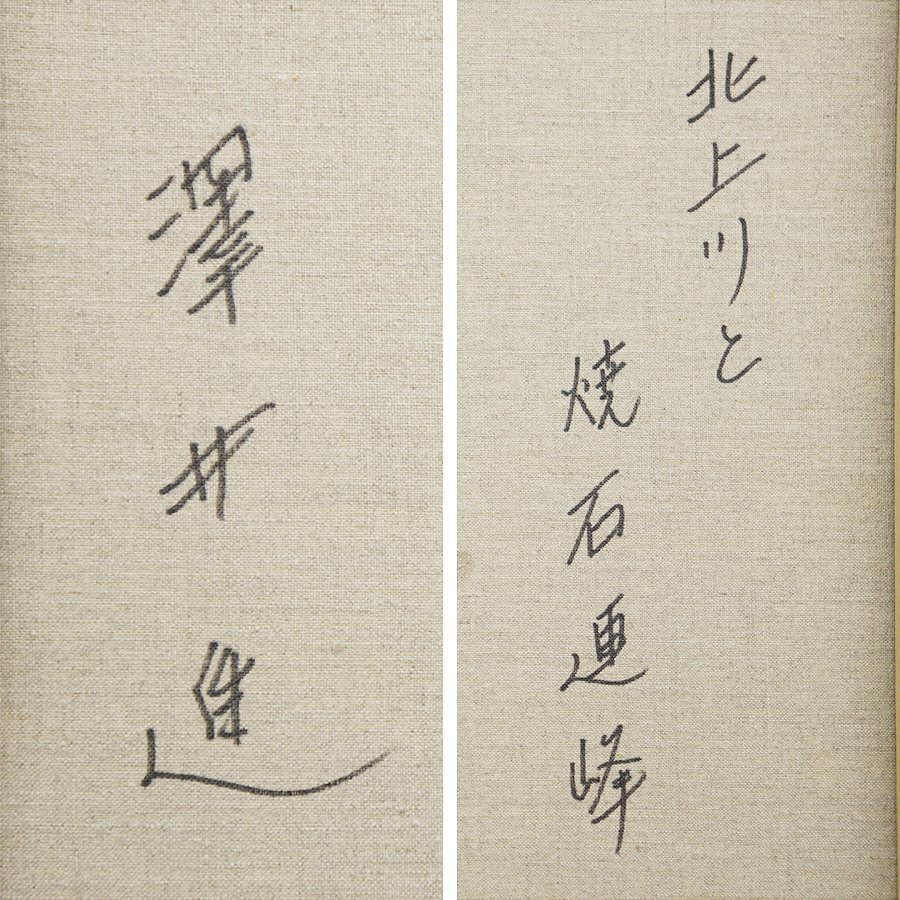 澤井進
北上川と
焼石連峰